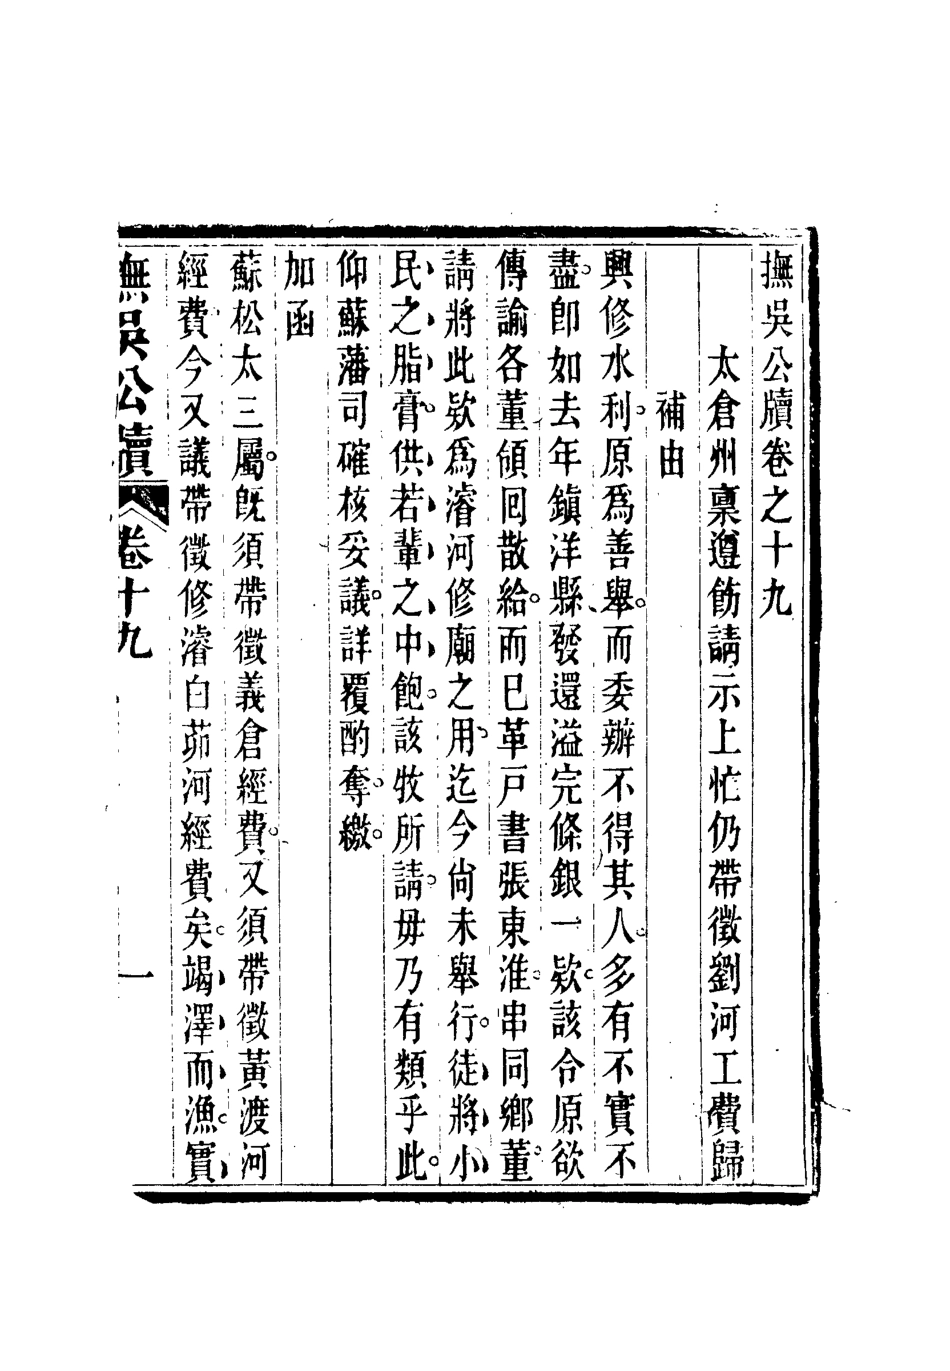 撫吳公牘卷之十九
太倉州稟遵飭請示上忙仍帶徵劉河工費歸
補由
興修水利。原爲善舉。而委辦不得其人。多有不實不
盡。卽如去年鎮洋縣、發還溢完條銀一欵。該合原欲
傳諭各董領回散給。而已革戸書張東淮。串同鄉董。
請將此欵爲濬河修廟之用、迄今尙未舉行。徒將小
民之脂膏。供若輩之中飽。該牧所請。毋乃有類乎此。
仰蘇藩司確核妥議。詳覆酌奪。繳。
加函
蘇松太三屬。旣須帶徵義倉經費。又須帶徵黃渡河
經費。今又議帶徵修濬白茆河經費矣。竭澤而漁。實
撫吳公牘 卷十九 一